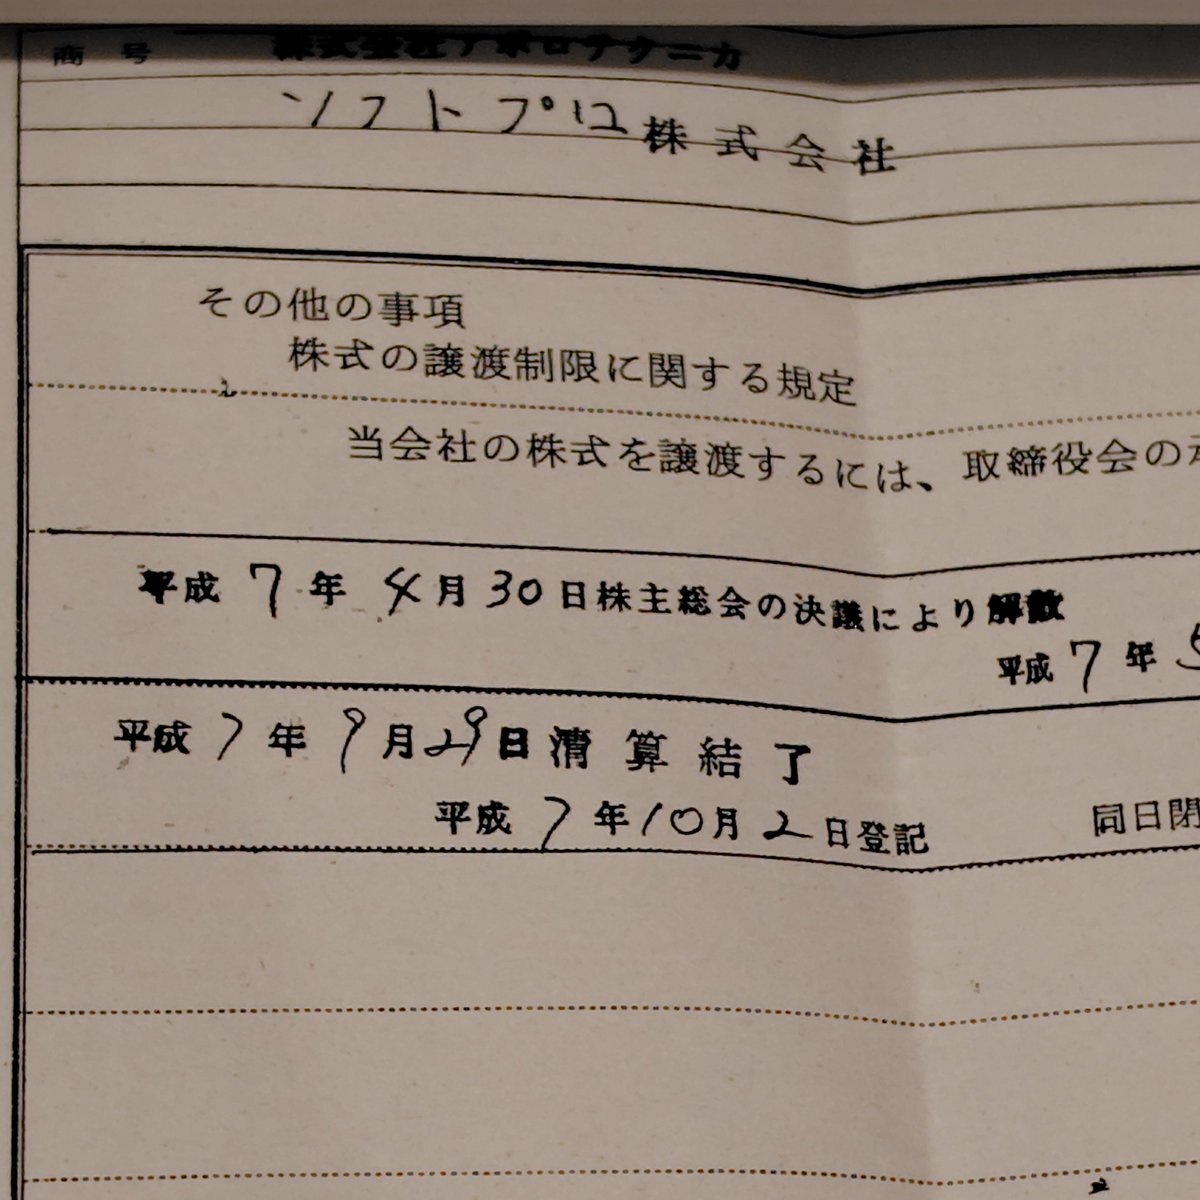 商号 株式会社アポロテクニカ
ソフトプロ株式会社
その他の事項
株式の譲渡制限に関する規定
当会社の株式を譲渡するには、取締役会の
平成7年4月30日株主総会の決議により解散
平成7年5
平成7年9月29日清算結了
平成7年10月2日登記 同日閉